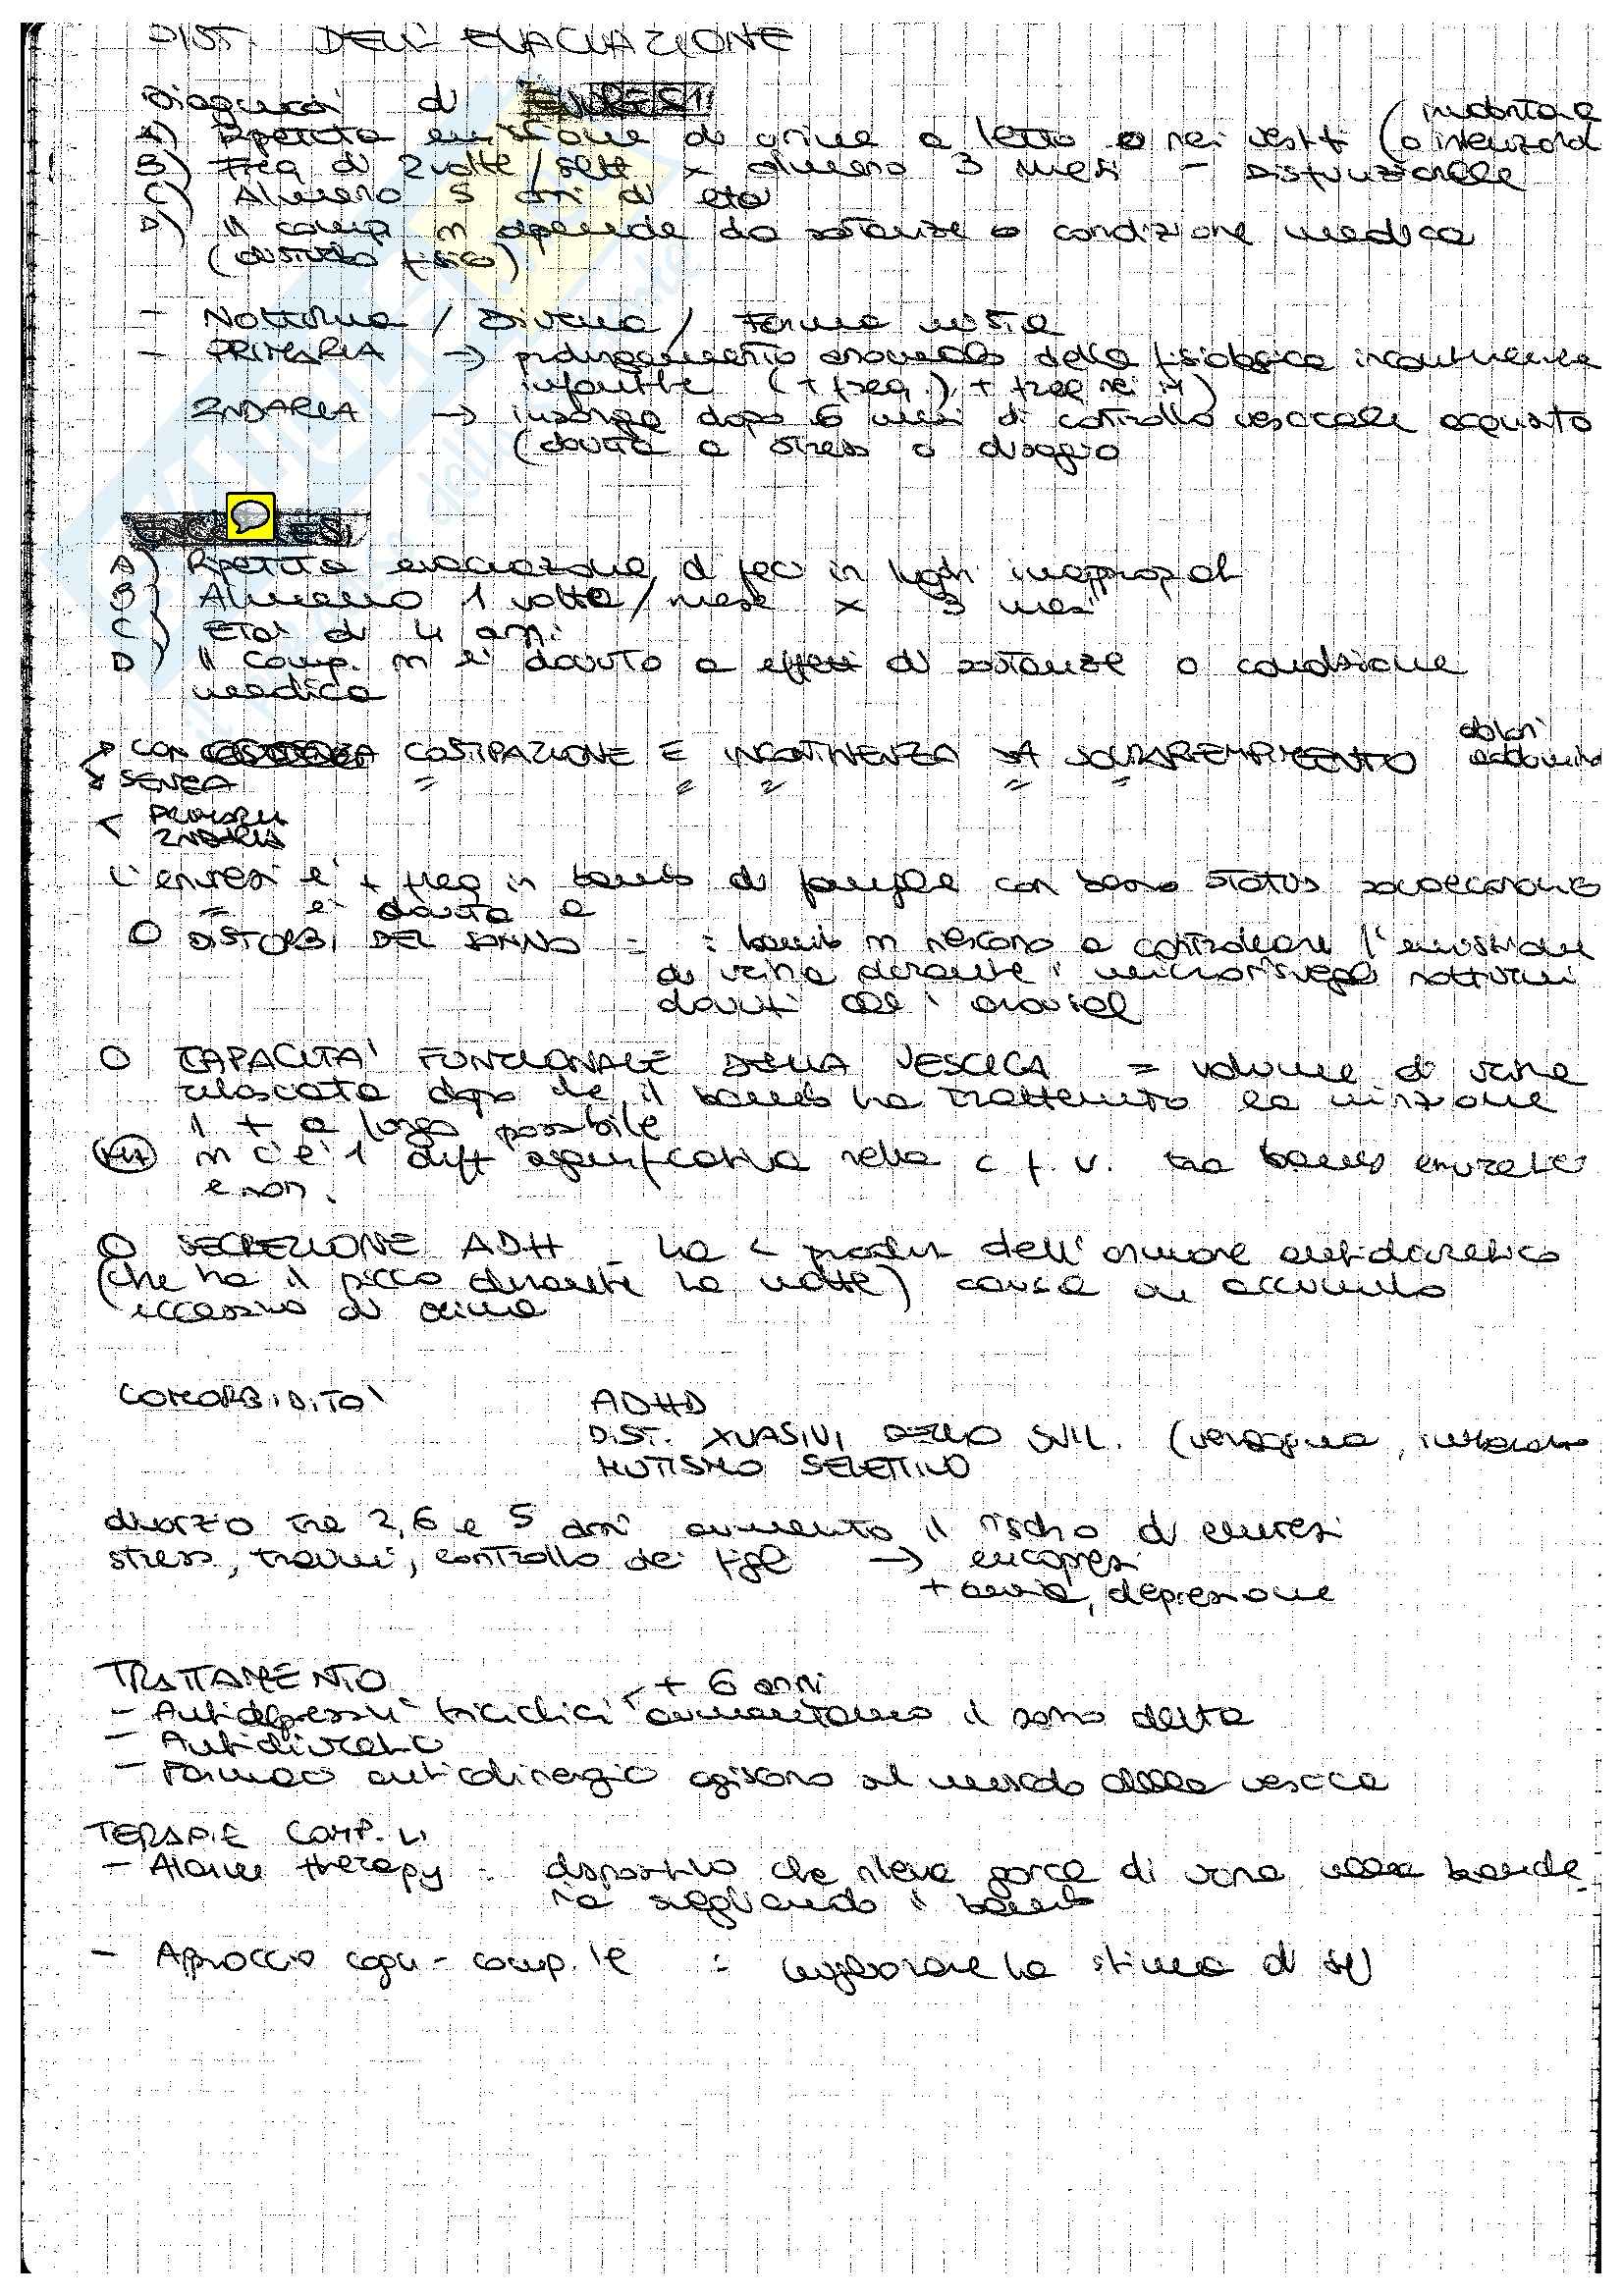 DIST. DELL' EVACUAZIONE
Diagnosi di ENURESI
involontaria
A) Ripetuta emissione di urina a letto o nei vestiti (o intenzional
B) Freq di 2 volte/sett x almeno 3 mesi - Disfunzionale
C) Almeno 5 anni di età
D) Il comp. n dipende da sostanze o condizione medica
(disturbo fisico)
- Notturna / Diurna / Forma mista
- PRIMARIA → prolungamento anomalo della fisiologica incontinenza
infantile (+ freq.) + freq nei M)
2NDARIA → insorge dopo 6 mesi di controllo vescicale acquisito
(dovuta a stress o disagio
ENCOPRESI
A) Ripetuta evacuazione di feci in luoghi inappropiati
B) Almeno 1 volta/mese x 3 mesi
C) Età di 4 anni
D) Il comp. n è dovuto a effetti di sostanze o condizione
medica
dolori
CON COSTIPAZIONE E INCONTINENZA DA SOVRARIEMPIMENTO addominali
SENZA
PRIMARIA
2NDARIA
L'enuresi è + freq in bambini di famiglie con basso status socioeconomico
= è dovuta a
O DISTURBI DEL SONNO = i bambini n riescono a controllare l'emissione
di urina durante i microrisvegli notturni
dovuti all'arousal
O CAPACITA' FUNZIONALE DELLA VESCICA = volume di urina
rilasciata dopo che il bambino ha trattenuto la minzione
il + a lungo possibile
n c'è 1 diff significativa nella c.f.v. tra bambini enuretici
e non.
O SECREZIONE ADH - ha < produz dell'ormone antidiuretico
(che ha il picco durante la notte) causa un accumulo
eccessivo di urina
COMORBIDITA' ADHD
DIST. XVASIVI DELLO SVIL. (vergogna,
MUTISMO SELETTIVO
divorzio tra 2, 6 e 5 anni aumenta il rischio di enuresi
stress, traumi, controllo dei figli → encopresi
+ ansia, depressione
TRATTAMENTO + 6 anni
- Antidepressivi triciclici aumentano il sonno delta
- Antidiuretico
- Farmaci anticolinergici agiscono sul muscolo della vescica
TERAPIE COMP.LI
- Alarm therapy : dispositivo che rileva gocce di urina nella biancheria
svegliando il bambino
- Approccio cogn-comp.le : migliorare la stima di sé